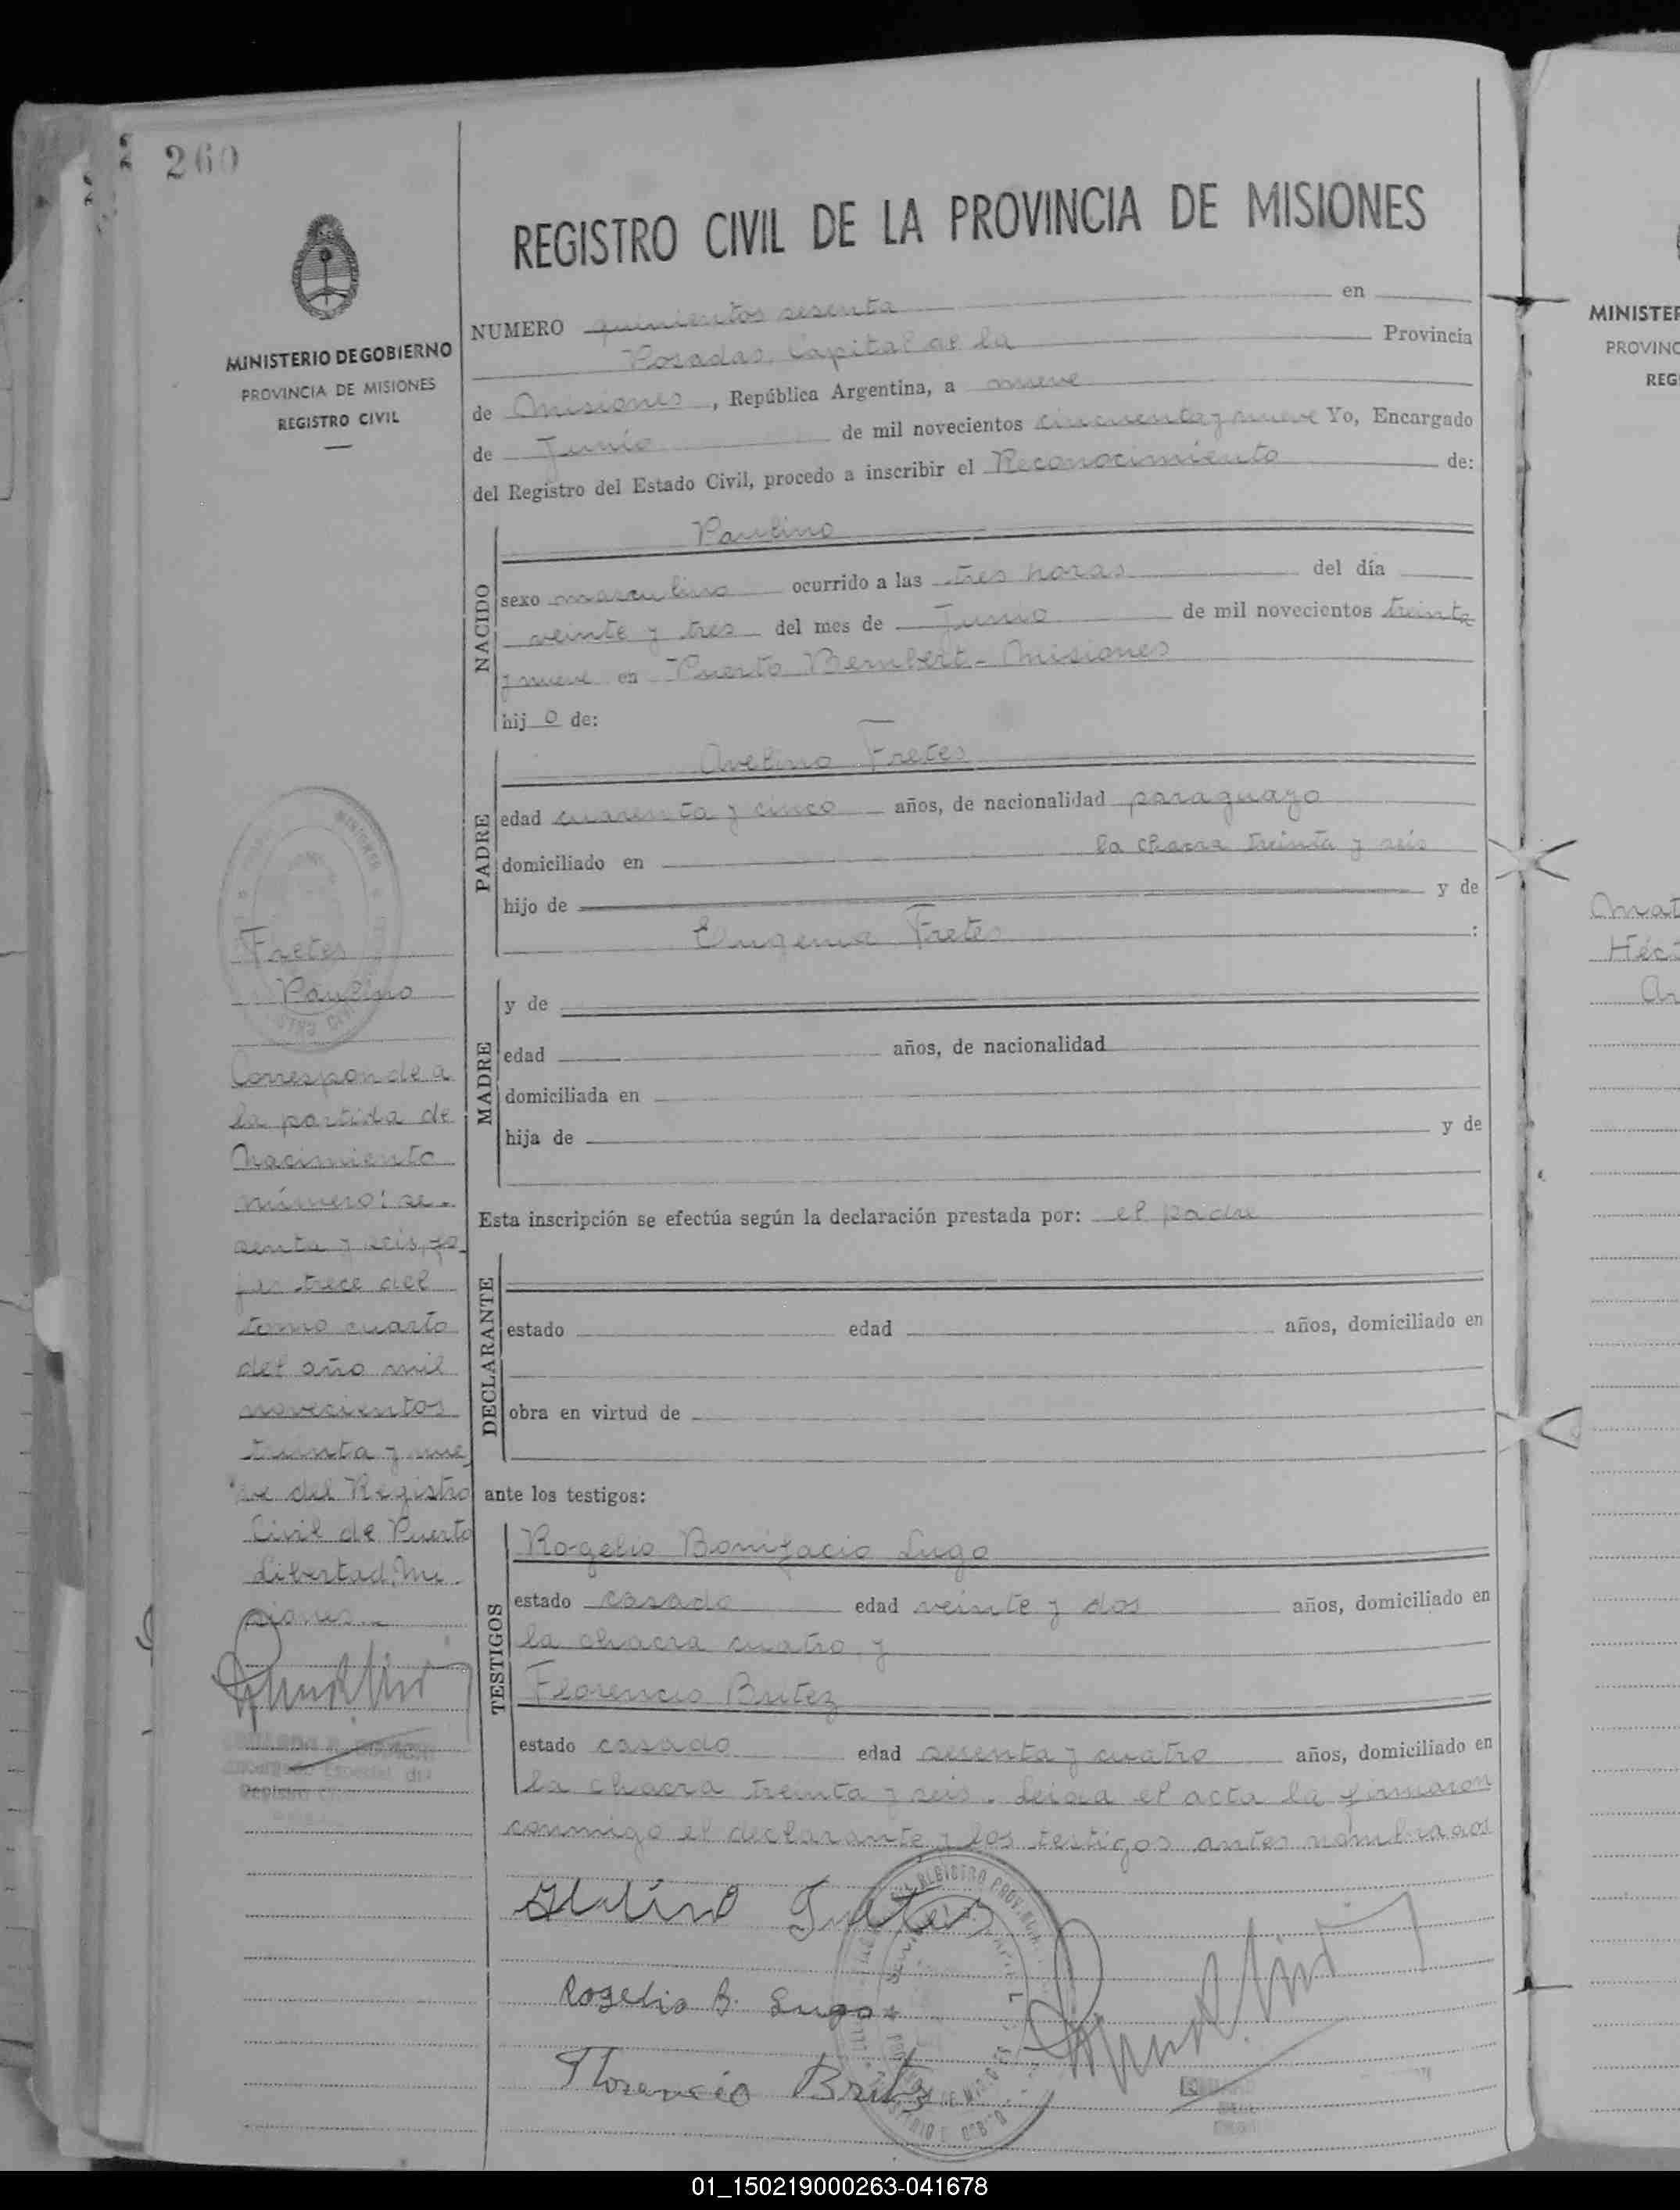 260
MINISTERIO DE GOBIERNO
PROVINCIA DE MISIONES
REGISTRO CIVIL
REGISTRO CIVIL DE LA PROVINCIA DE MISIONES
NUMERO quinientos sesenta en
Posadas, Capital de la Provincia
de Misiones, República Argentina, a nueve
de Junio de mil novecientos cincuenta y nueve Yo, Encargado
del Registro del Estado Civil, procedo a inscribir el Reconocimiento de:
NACIDO
Paulino
sexo masculino ocurrido a las tres horas del día
veinte y tres del mes de Junio de mil novecientos treinta
y nueve en Puerto Bembert - Misiones
hij o de:
PADRE
Avelino Fretes
edad cuarenta y cinco años, de nacionalidad paraguayo
domiciliado en la chacra treinta y seis
hijo de y de
Eugenia Fretes :
MADRE
y de
edad años, de nacionalidad
domiciliada en
hija de y de
Esta inscripción se efectúa según la declaración prestada por: el padre
DECLARANTE
estado edad años, domiciliado en
obra en virtud de
ante los testigos:
TESTIGOS
Rogelio Bonifacio Lugo
estado casado edad veinte y dos años, domiciliado en
la chacra cuatro, y
Florencio Britez
estado casado edad sesenta y cuatro años, domiciliado en
la chacra treinta y seis. Leida el acta la firmaron
conmigo el declarante y los testigos antes nombrados
Fretes
Rogelio B. Lugo
Florencio Britez
Fretes
Paulino
Corresponde a
la partida de
Nacimiento
número: se-
senta y seis, fo
jas trece del
tomo cuarto
del año mil
novecientos
treinta y nue
ve del Registro
Civil de Puerto
Libertad, Mi-
siones.
Encargado Especial del
Registro
MINISTER
PROVINC
REG
Mat
Héct
Ar
01_150219000263-041678